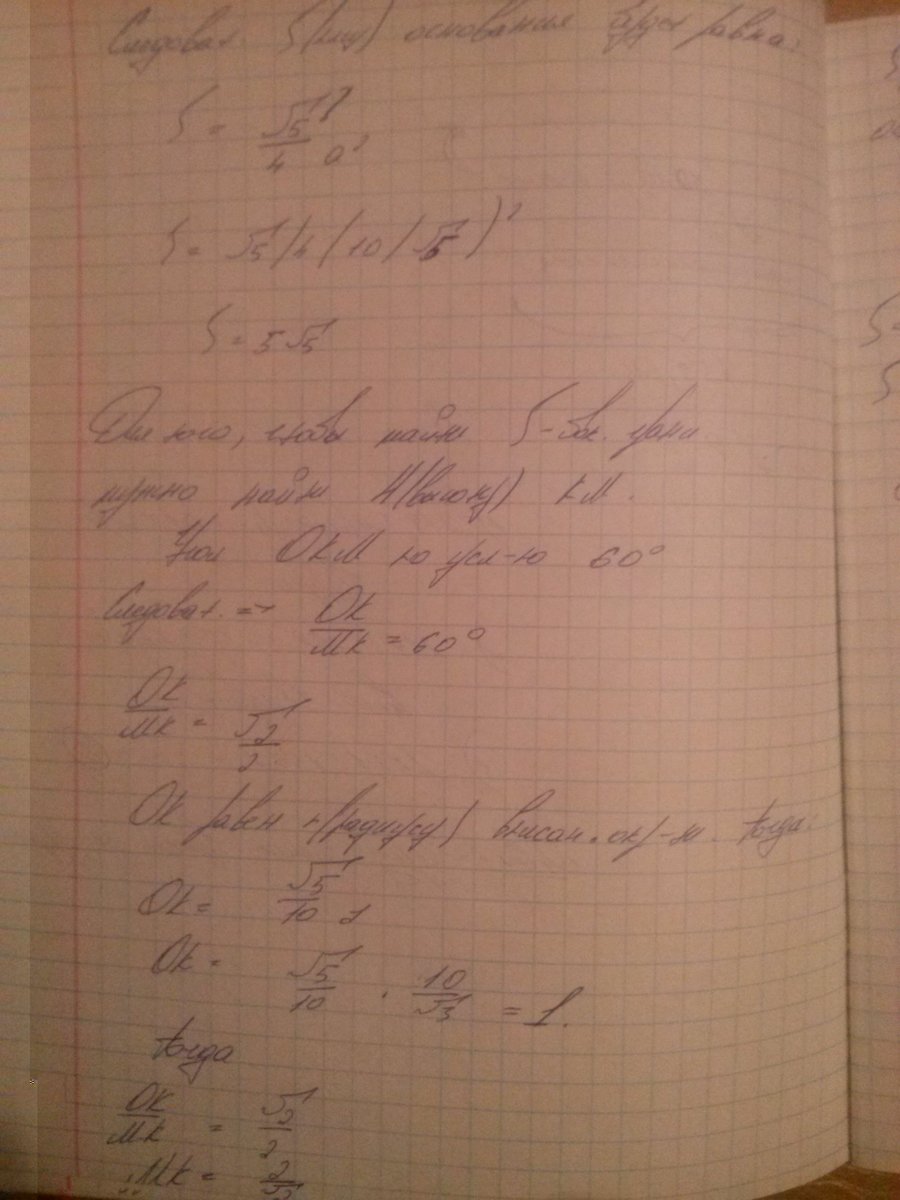 Следоват. S(пл) основания будет равна:
S = √5/4 a²
S = √5/4(10/√5)²
S = 5√5
Для того, чтобы найти S-бок. грани
нужно найти H(высоту) KM.
Угол OKM по усл-ю 60°
Следоват. => OK/MK = 60°
OK/MK = √2/2
OK равен r(радиусу) вписан. окр-ти. тогда:
OK = √5/10
OK = √5/10 · 10/√5 = 1.
тогда
OK/MK = √2/2
MK = 2/√2